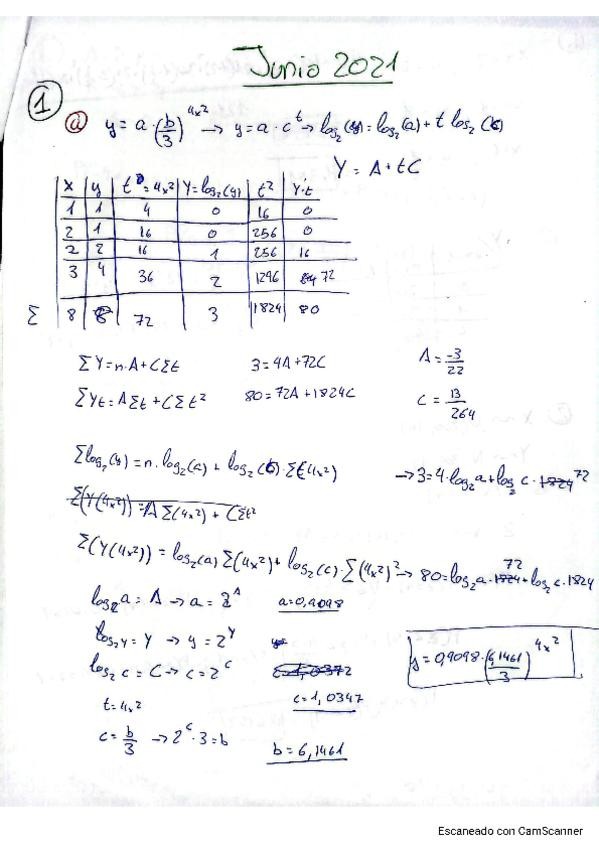 Junio 2021
1
a) y = a·(b/3)^4x² → y = a·c^t → log₂(y) = log₂(a) + t log₂(c)
Y = A + tC
x | y | t = 4x² | Y = log₂(y) | t² | Y·t
1 | 1 | 4 | 0 | 16 | 0
2 | 1 | 16 | 0 | 256 | 0
2 | 2 | 16 | 1 | 256 | 16
3 | 4 | 36 | 2 | 1296 | 72
Σ 8 | 8 | 72 | 3 | 1824 | 80
ΣY = n·A + CΣt 3 = 4A + 72C A = -3/22
ΣYt = AΣt + CΣt² 80 = 72A + 1824C C = 13/264
Σlog₂(y) = n·log₂(a) + log₂(c)·Σ(4x²) → 3 = 4·log₂a + log₂c·1824 72
Σ(Y(4x²)) = AΣ(4x²) + CΣt²
Σ(Y(4x²)) = log₂(a) Σ(4x²) + log₂(c)·Σ(4x²)² → 80 = log₂a·1824 72 + log₂c·1824
log₂a = A → a = 2^A a = 0,9098
log₂y = Y → y = 2^Y
log₂c = C → c = 2^C c = 1,0372
t = 4x² c = 1,0347
c = b/3 → 2^C·3 = b b = 6,1461
y = 0,9098·(6,1461/3)^4x²
Escaneado con CamScanner